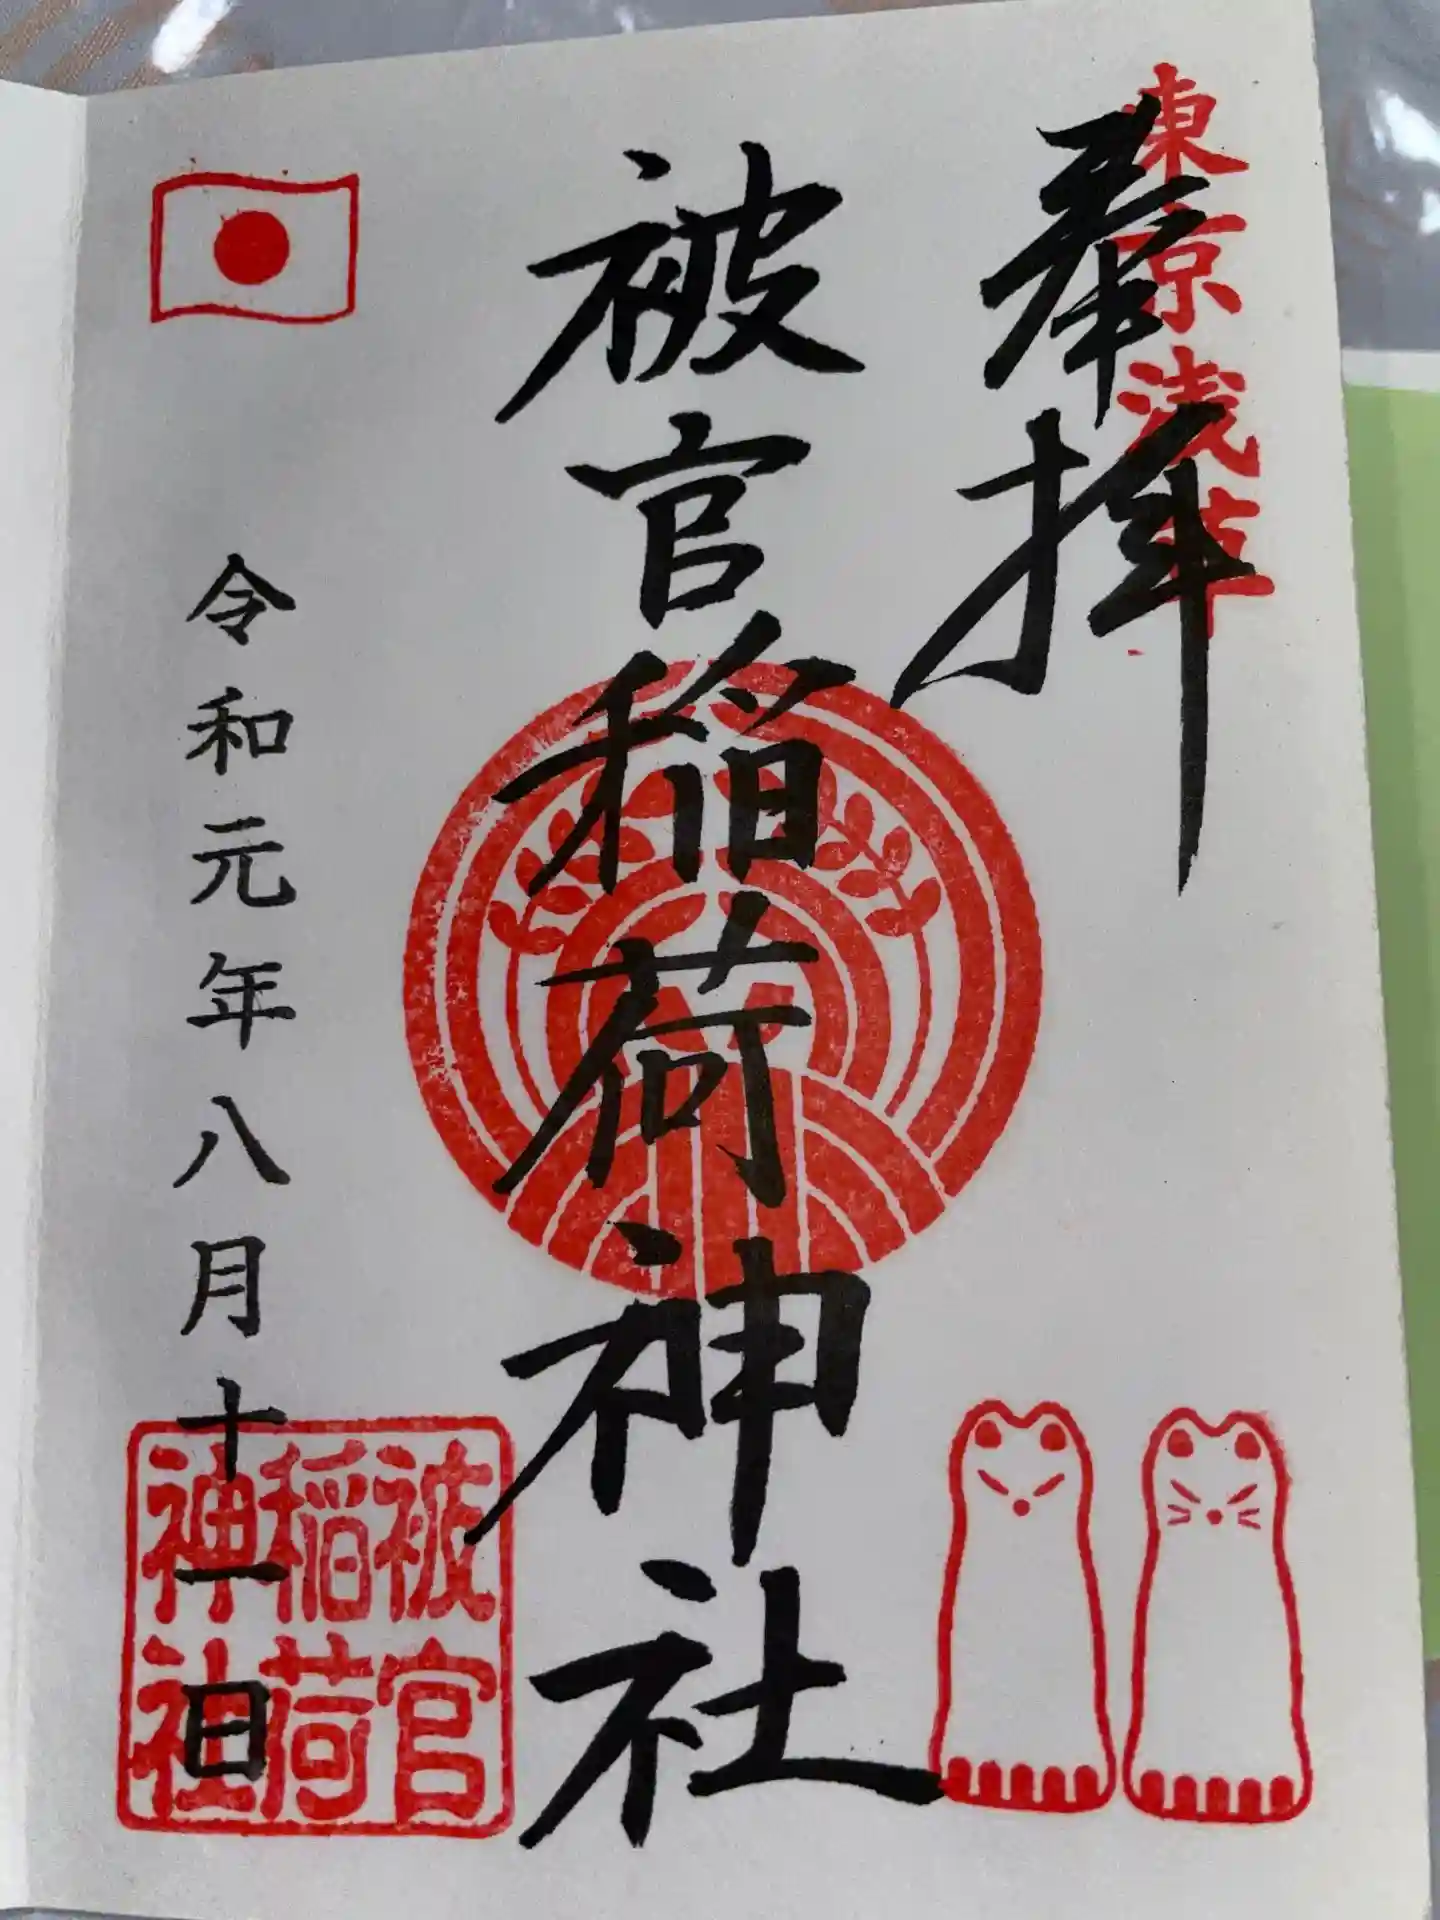 東京浅草
奉拝
被官稲荷神社
令和元年八月十一日
被官
稲荷
神社